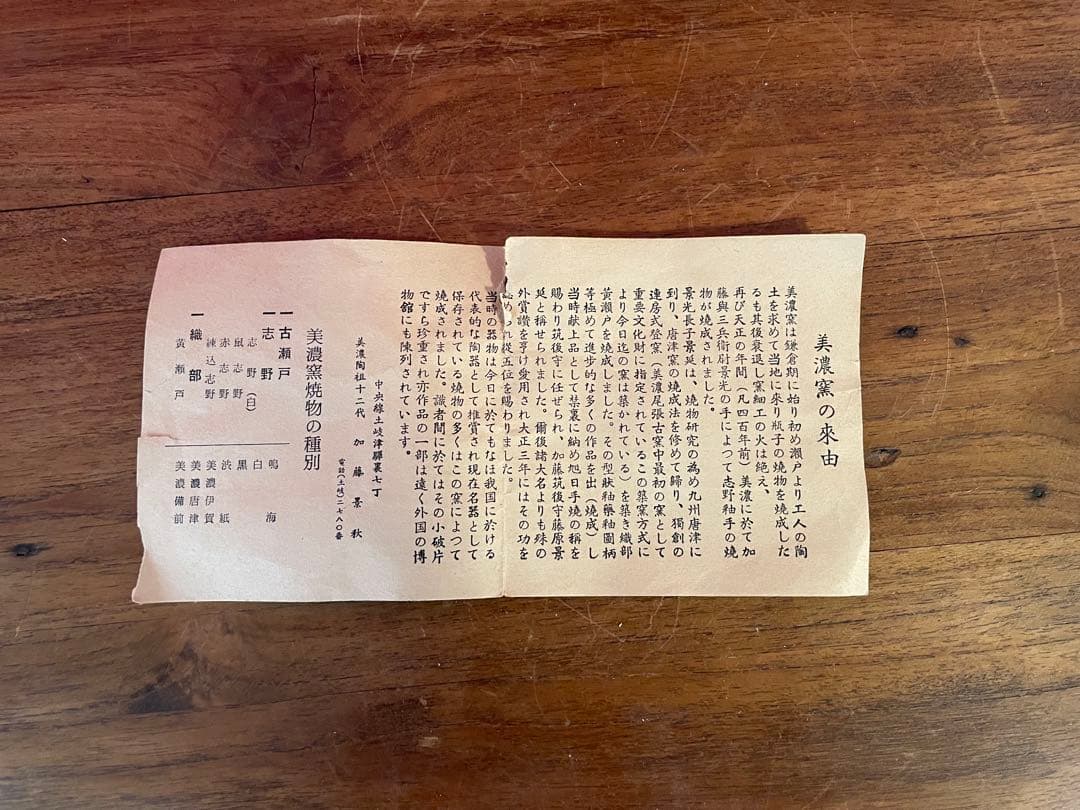 美濃窯の來由
美濃窯は鎌倉期に始り初め瀬戸より工人の陶
土を求めて当地に来り瓶子の焼物を焼成した
るも其後衰退し窯細工の火は絶え、
再び天正の年間(凡四百年前)美濃に於て加
藤與三兵衛尉景光の手によつて志野釉手の焼
物が焼成されました。
景光長子景延は、焼物研究の為め九州唐津に
到り、唐津窯の焼成法を修めて帰り、獨創の
連房式登窯、美濃尾張古窯中最初の窯として
重要文化財に指定されているこの築窯方式に
より今日迄の窯は築かれている)を築き織部
黄瀬戸を焼成しました。その型状釉藥釉圖柄
等極めて進歩的な多くの作品を出(焼成)し
当時献上品として禁裏に納め旭日手焼の称を
賜わり筑後守に任ぜられ、加藤筑後守藤原景
延と称せられました。爾後諸大名よりも殊の
外賞讃を享け愛用され大正三年にはその功を
認められ從五位を賜わりました。
当時の器物は今日に於てもなほ我国に於ける
代表的な陶器として推賞され現在名器として
保存されている焼物の多くはこの窯によつて
焼成されました。識者間に於てはその小破片
ですら珍重され亦作品の一部は遠く外国の博
物館にも陳列されています。
中央線土岐津驛裏七丁
美濃陶祖十二代 加藤景秋
電話(土岐)二七八〇番
美濃窯焼物の種別
一古瀬戸
一志野
志野(白)
鼠志野
赤志野
練込志野
一織部
黄瀬戸
鳴海
白
黒
渋紙
美濃伊賀
美濃唐津
美濃備前